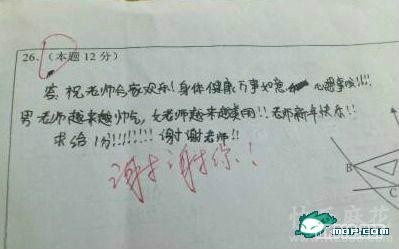 26.（本题12分）
答：祝老师合家欢乐！身体健康，万事如意 心想事成！！！！
男老师越来越帅气，女老师越来越美丽！！老师新年快乐！！
求给1分！！！！！！！！谢谢老师！！
谢谢你！！
B
C
快乐麻花
MOP.COM